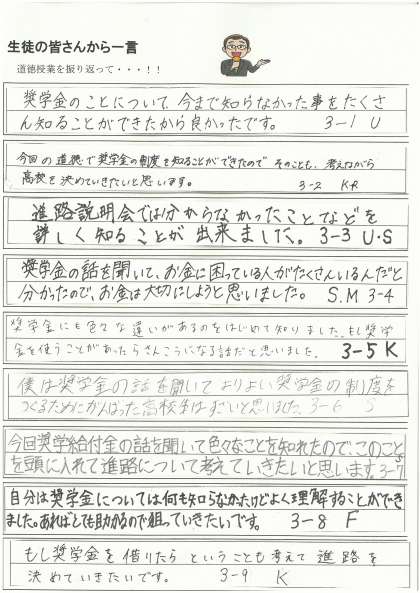 生徒の皆さんから一言
道徳授業を振り返って・・・！！
奨学金のことについて、今まで知らなかった事をたくさ
ん知ることができたから良かったです。 3-1 U
今回の道徳で奨学金の制度を知ることができたので そのことも、考えながら
高校を決めていきたいと思います。 3-2 KR
進路説明会では分からなかったことなどを
詳しく知ることが出来ました。3-3 U・S
奨学金の話を聞いて、お金に困っている人がたくさんいるんだと
分かったので、お金は大切にしようと思いました。 S.M 3-4
奨学金にも色々な違いがあるのをはじめて知りました。もし奨学
金を使うことがあったらさんこうになる話だと思いました。 3-5 K
僕は奨学金の話を聞いてよりよい奨学金の制度を
つくるためにがんばった高校生はすごいと思いました。3-6 S
今回奨学給付金の話を聞いて色々なことを知れたので、このこと
を頭に入れて進路について考えていきたいと思います。3-7 S
自分は奨学金については何も知らなかたけどよく理解することができ
ました。あればとても助かるので狙っていきたいです。 3-8 F
もし奨学金を借りたら ということも考えて 進路を
決めていきたいです。 3-9 K